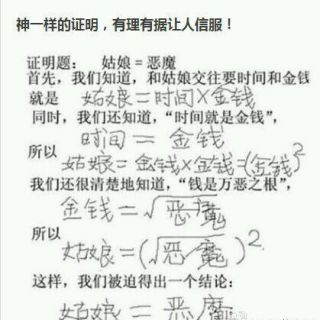 神一样的证明，有理有据让人信服！
证明题： 姑娘=恶魔
首先，我们知道，和姑娘交往要时间和金钱
就是 姑娘=时间×金钱
同时，我们还知道，“时间就是金钱”，
时间 = 金钱
所以
姑娘=金钱×金钱=(金钱)²
我们还很清楚地知道，“钱是万恶之根”，
金钱=√恶魔
所以
姑娘=(√恶魔)²
这样，我们被迫得出一个结论：
姑娘 = 恶魔